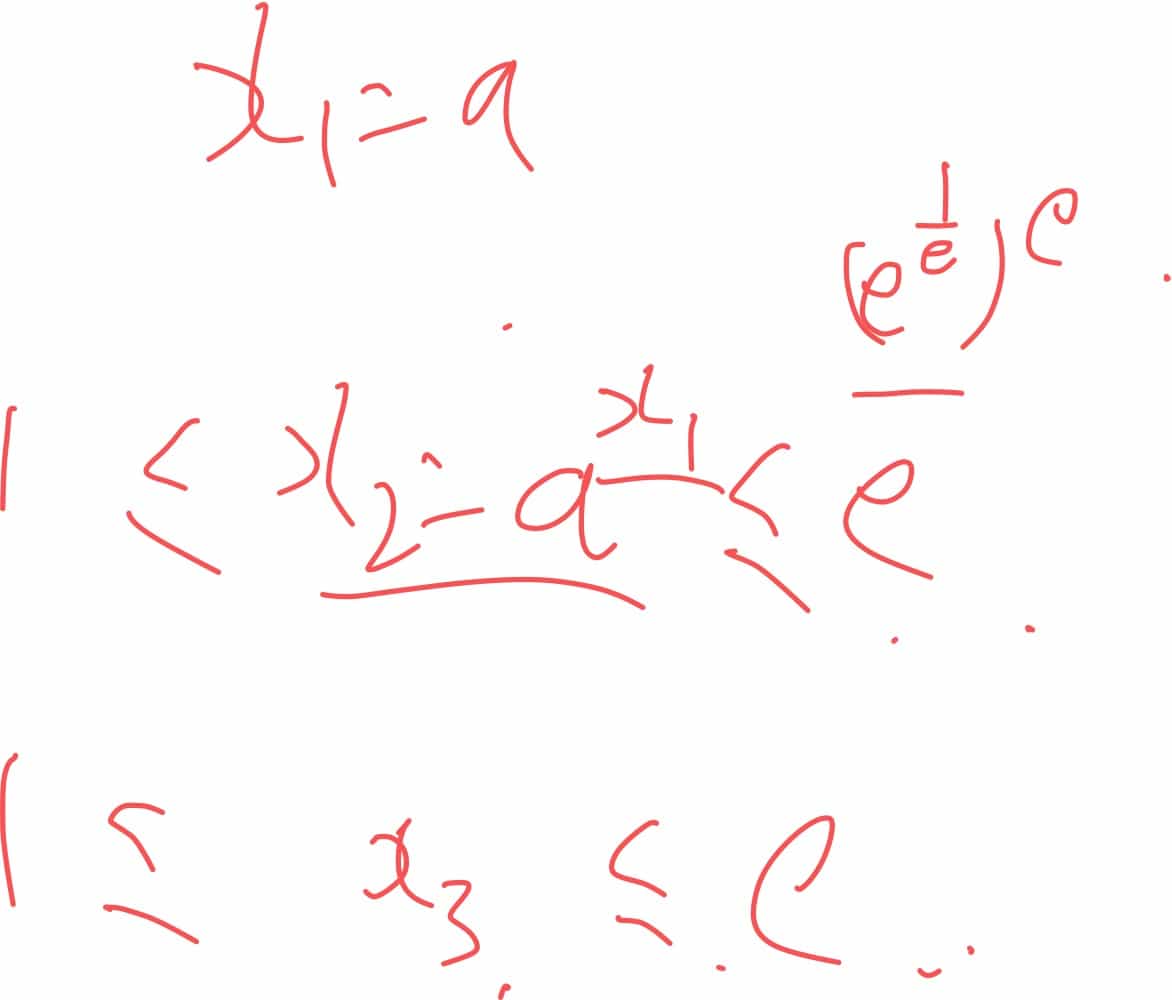 x₁ = a
(e^{1/e})^e
1 ≤ x₂ = a^{x₁} ≤ e
1 ≤ x₃ ≤ e